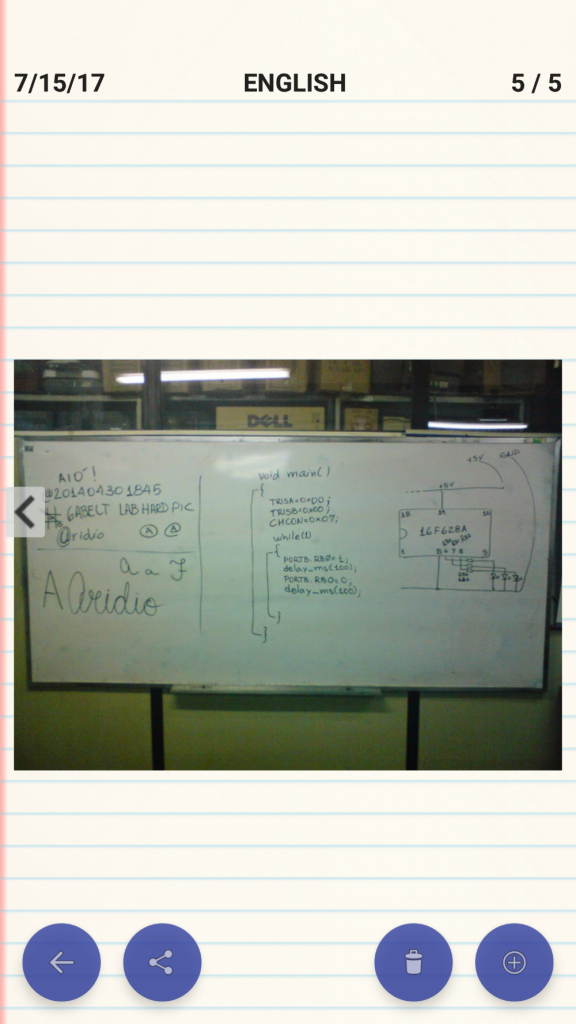 7/15/17 ENGLISH 5 / 5
DELL
AIO~!
@201404301845
GABELT LAB HARD PIC
@ridio A a
a a
A Aridio
void main()
{
TRISA=0x00;
TRISB=0x00;
CMCON=0x07;
while(1)
{
PORTB.RB0=1;
delay_ms(100);
PORTB.RB0=0;
delay_ms(100);
}
}
+5V GND
+5V
18 14 10
16F628A
1 5 6 7 8 9